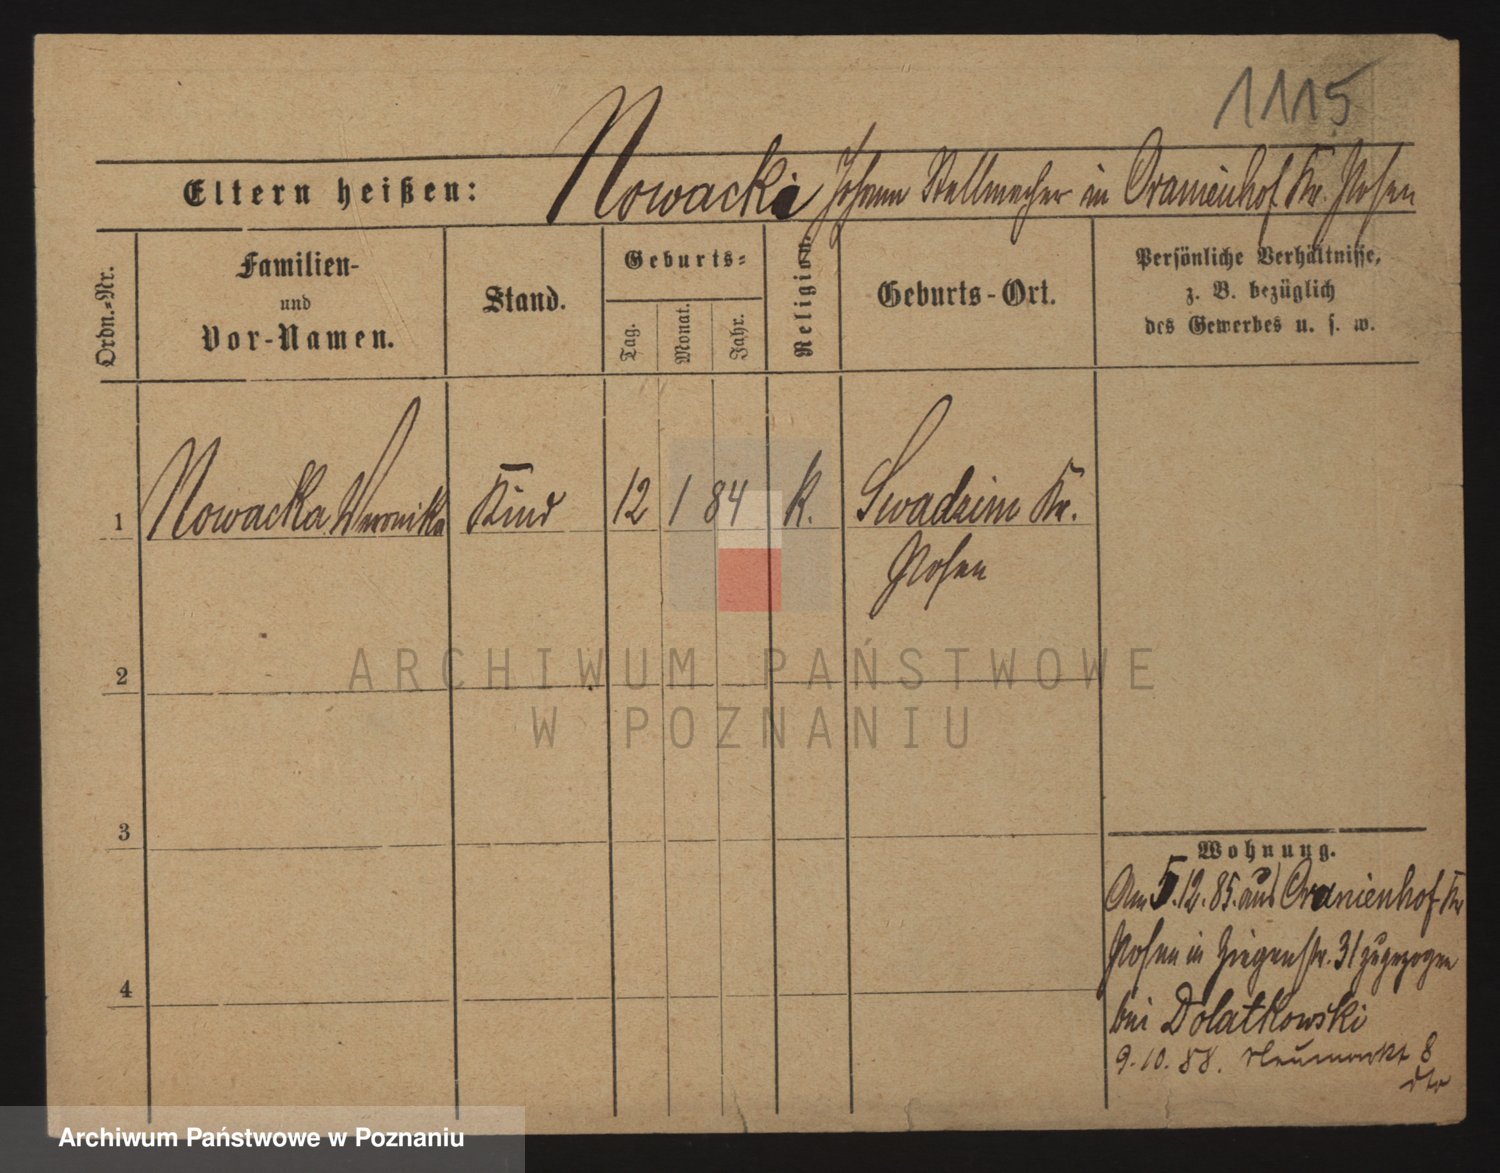 1115
Eltern heißen: Nowacki Johann Stellmacher in Oranienhof Kr. Posen
Ordn.-Nr.
Familien-
und
Vor-Namen.
Stand.
Geburts-
Tag.
Monat.
Jahr.
Religion.
Geburts-Ort.
Persönliche Verhältnisse,
z. B. bezüglich
des Gewerbes u. s. w.
1 Nowacka Weronika Kind 12 1 84 k. Swadzim Kr.
Posen
2
3
4
Wohnung.
Am 5.12.85. aus Oranienhof Kr
Posen in Ziegenstr. 31 zugezogen
bei Dolatkowski
9.10.88. Neumarkt 8
ARCHIWUM PAŃSTWOWE
W POZNANIU
Archiwum Państwowe w Poznaniu